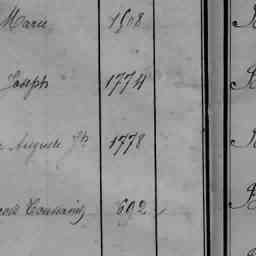 Marie 1508
Joseph 1774
Auguste Jh 1778
Toussaint 692